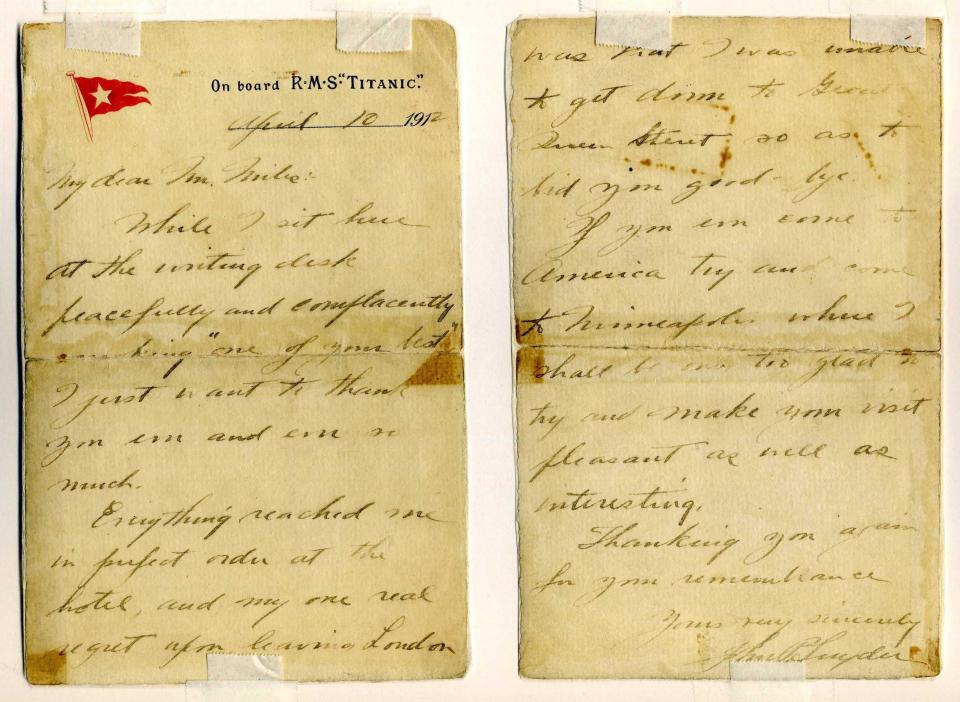 On board R·M·S. "TITANIC."
April 10 1912
My dear Mr. Miles:
While I sit here
at the writing desk
peacefully and complacently
"one of your best"
I just want to thank
you ever and ever so
much.
Everything reached me
in perfect order at the
hotel, and my one real
regret upon leaving London
was that I was unable
to get down to
Street so as to
bid you good-bye.
If you ever come to
America try and come
to Minneapolis where I
shall be only too glad to
try and make your visit
pleasant as well as
interesting.
Thanking you again
for your remembrance
Yours very sincerely
Snyder